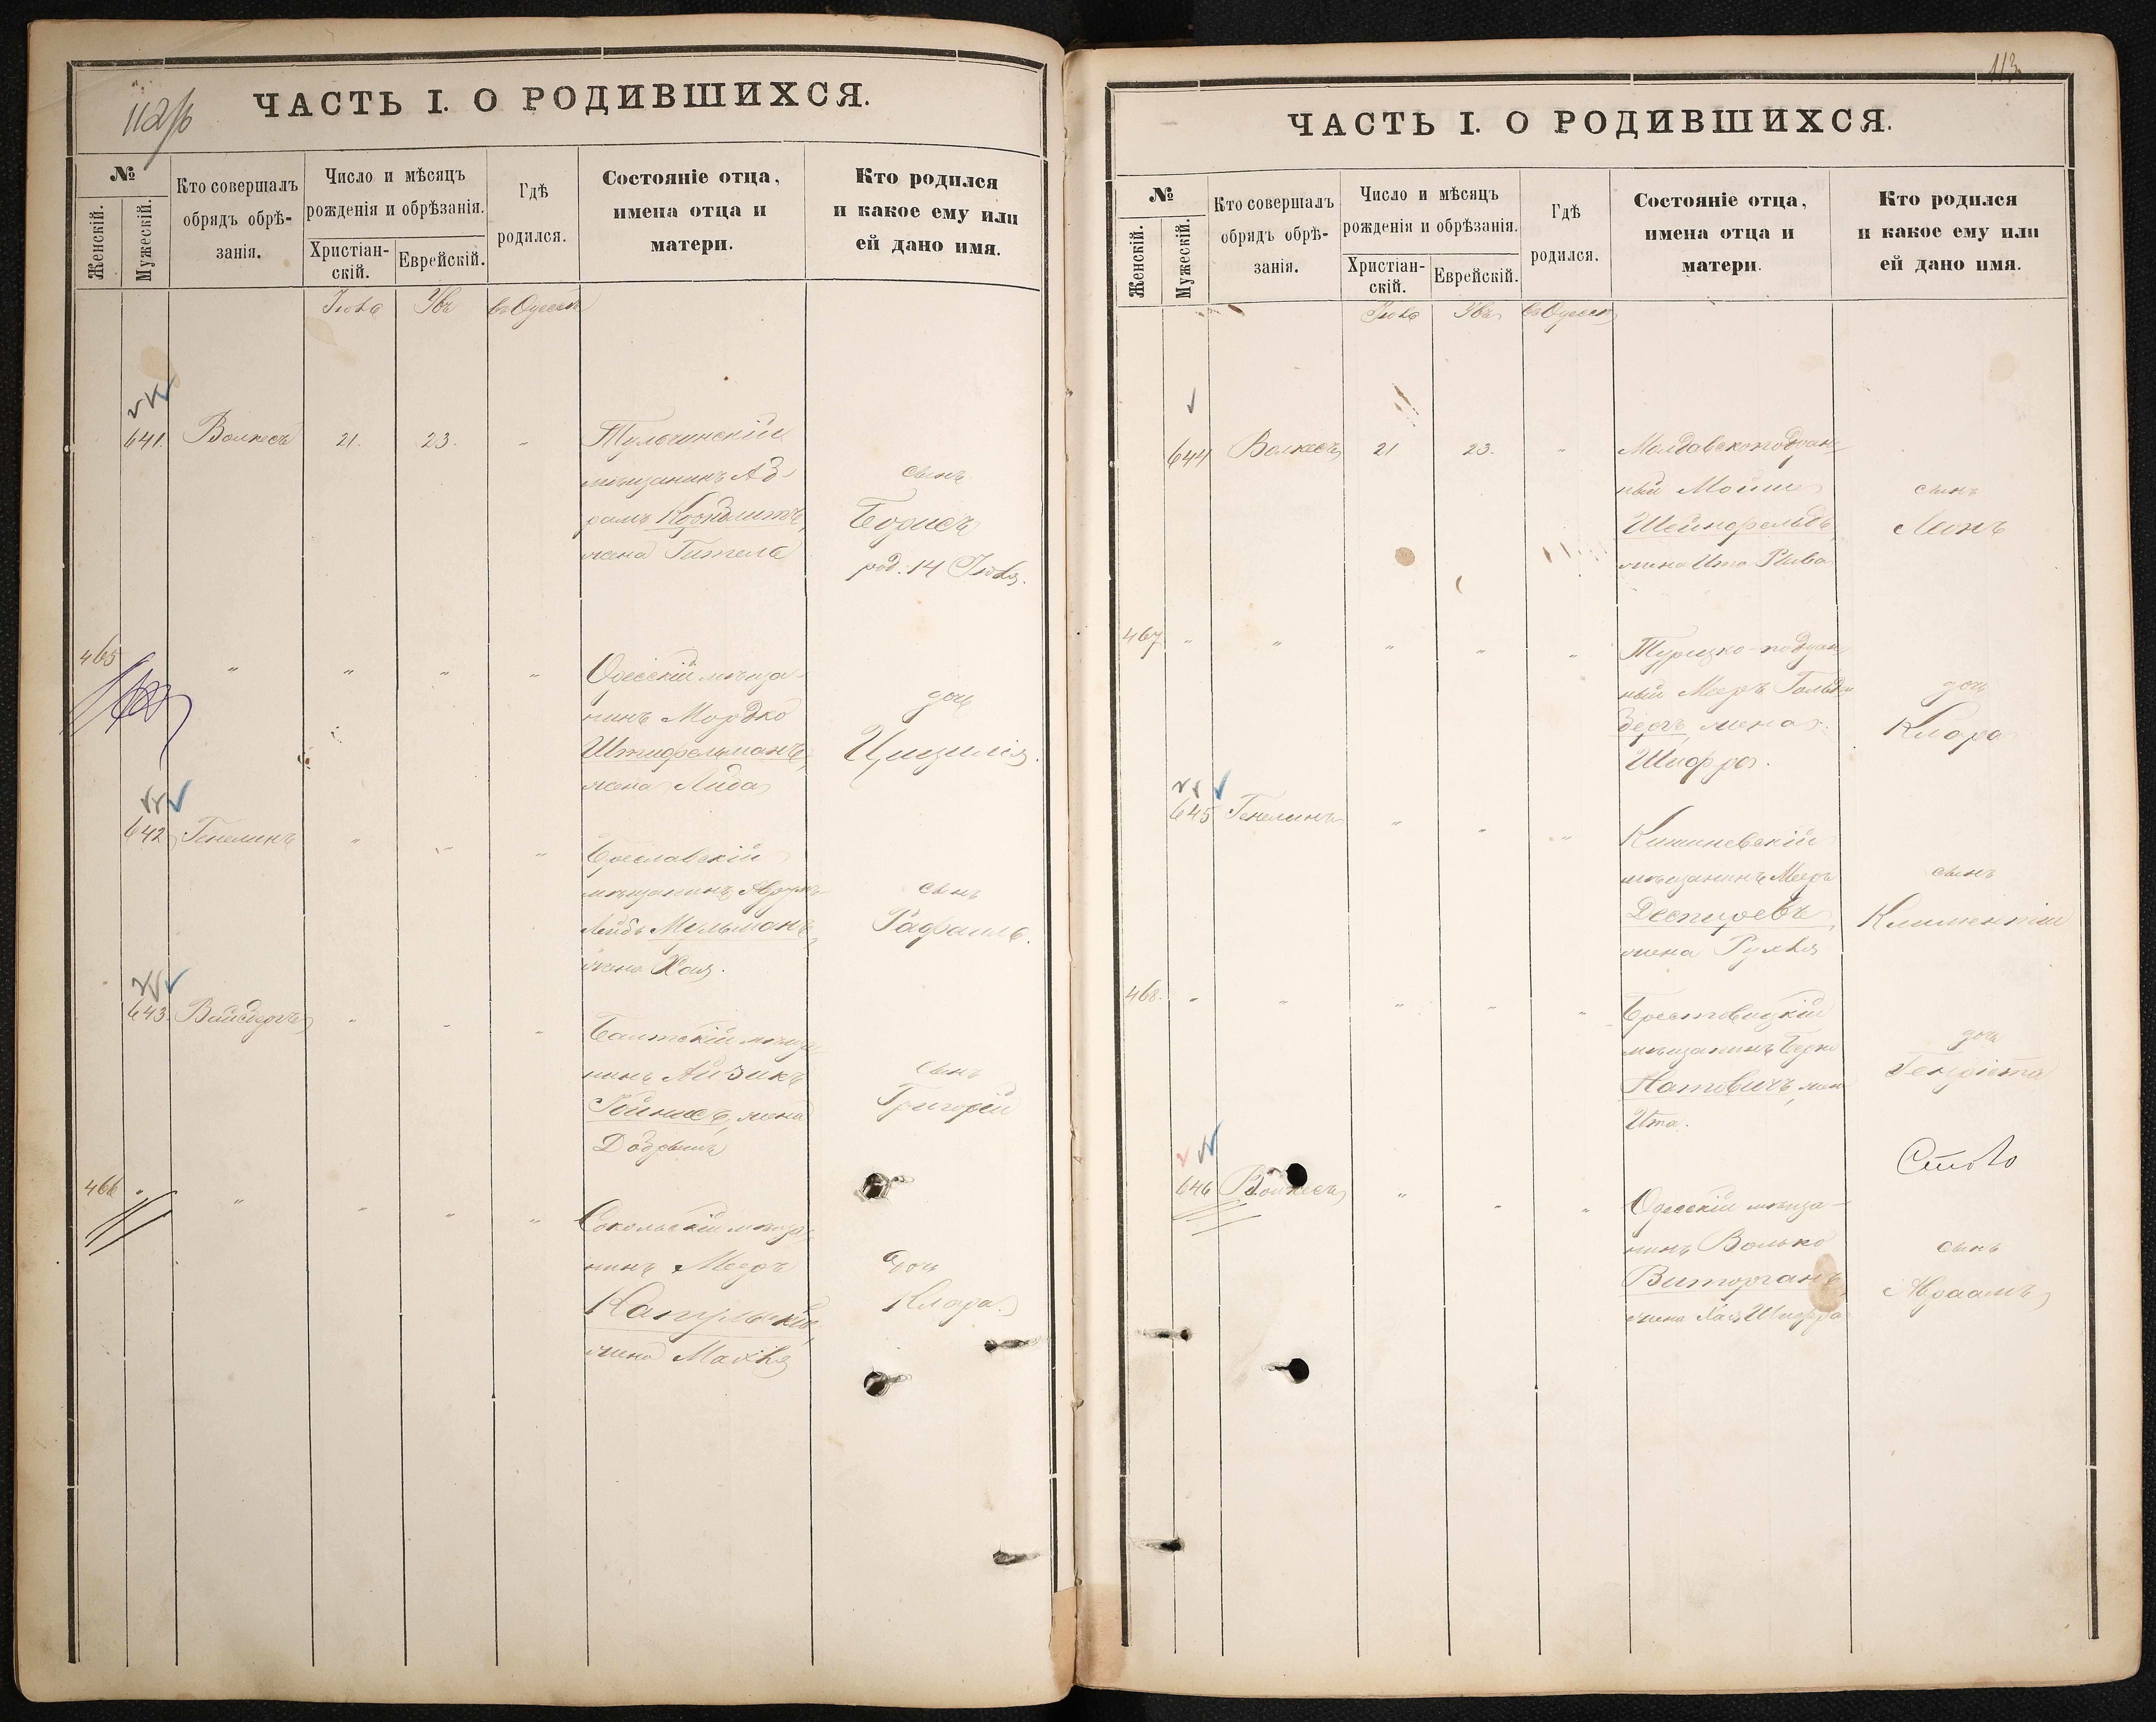 ЧАСТЬ I. О РОДИВШИХСЯ.
№
Женскій.
Мужескій.
Кто совершалъ
обрядъ обрѣ-
занія.
Число и мѣсяцъ
рожденія и обрѣзанія.
Христіан-
скій.
Еврейскій.
Гдѣ
родился.
Состояніе отца,
имена отца и
матери.
Кто родился
и какое ему или
ей дано имя.
въ Одессѣ
641. 21. 23. Тульчинскій
мѣщанинъ Аб-
рамъ
жена Гитель
сынъ
Борисъ
род. 14
465 Одесскій мѣща-
нинъ Мордко
Штифельманъ,
жена
дочь
Цицилія.
642 Генелинъ
Брославскій
мѣщанинъ
Лейбъ Мельманъ,
жена Хая.
сынъ
Рафаилъ.
643. Вайсбергъ Балтскій мѣща-
нинъ Айзикъ
жена
сынъ
Григорій
466 Сокольскій мѣща-
нинъ Мееръ
жена
дочь
Клара.
113
ЧАСТЬ I. О РОДИВШИХСЯ.
№
Женскій.
Мужескій.
Кто совершалъ
обрядъ обрѣ-
занія.
Число и мѣсяцъ
рожденія и обрѣзанія.
Христіан-
скій.
Еврейскій.
Гдѣ
родился.
Состояніе отца,
имена отца и
матери.
Кто родился
и какое ему или
ей дано имя.
въ Одессѣ
644 21 23. Молдавскоподдан-
ный Мойше
Шейнфельдъ,
жена Ита Рива
сынъ
Леонъ
467. Турецко-поддан-
ный Мееръ Гольден-
бергъ, жена
Шифра.
дочь
Клара
645 Генелинъ
Кишиневскій
мѣщанинъ Мееръ
жена Рухля
сынъ
Климентій
468.
мѣщанинъ Берко
Натовичъ, жен
Ита.
дочь
Генріета
646 Одесскій мѣща-
нинъ Волько
Виторганъ,
жена Хая Шифра
сынъ
Авраамъ